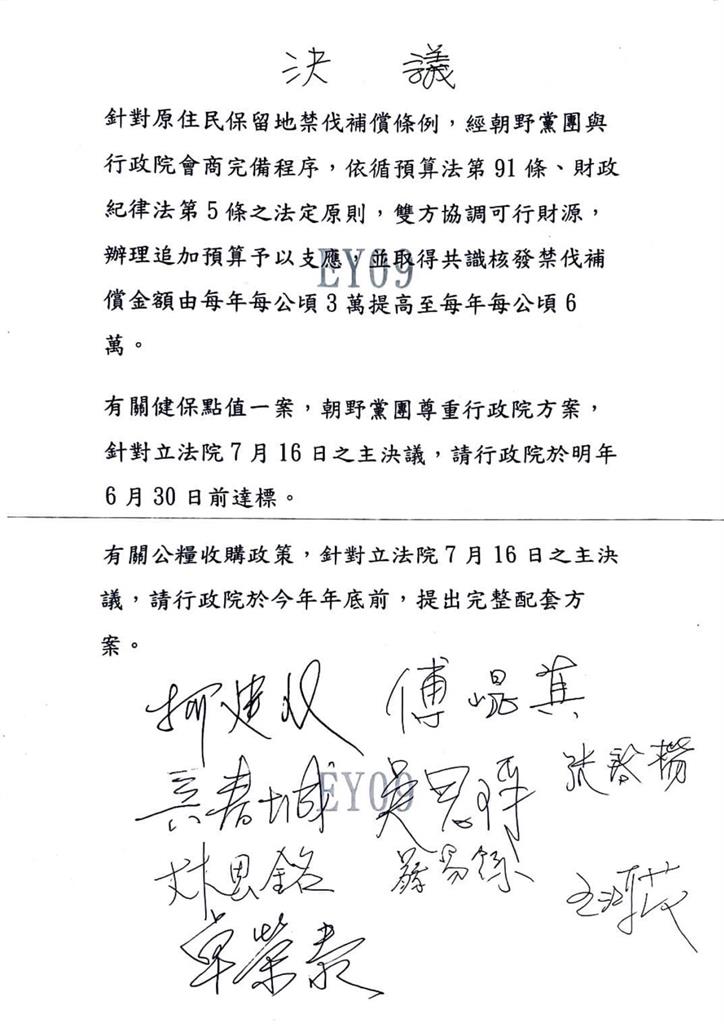 決議
針對原住民保留地禁伐補償條例，經朝野黨團與
行政院會商完備程序，依循預算法第91條、財政
紀律法第5條之法定原則，雙方協調可行財源，
辦理追加預算予以支應，並取得共識核發禁伐補
EY09
償金額由每年每公頃3萬提高至每年每公頃6
萬。
有關健保點值一案，朝野黨團尊重行政院方案，
針對立法院7月16日之主決議，請行政院於明年
6月30日前達標。
有關公糧收購政策，針對立法院7月16日之主決
議，請行政院於今年年底前，提出完整配套方
案。
柯建銘 傅崐萁
吳思瑤 張啓楷
EY09
林思銘
卓榮泰